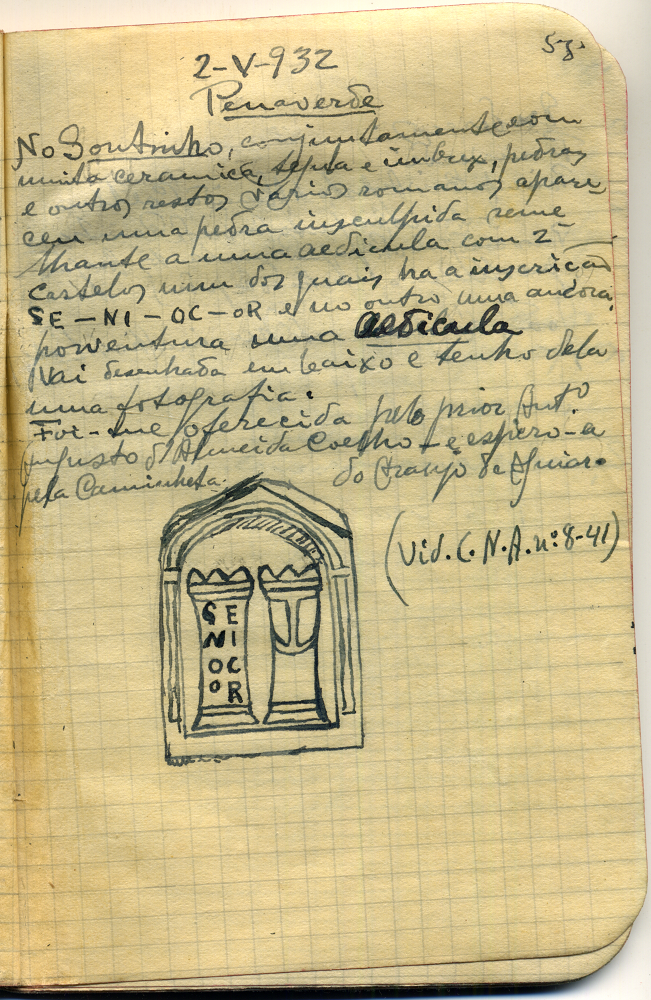 57.
2-V-932
Penaverde
No Soutinho, conjuntamente com
muita ceramica, tegula e imbrex, pedras
e outros restos varios romanos apare-
ceu uma pedra insculpida seme-
lhante a uma aedicula com 2
castelos num dos quais ha a inscrição
SE-NI-OC-OR e no outro uma ancora,
porventura uma aedicula
Vai desenhada em baixo e tenho dela
uma fotografia.
Foi-me oferecida pelo prior Antº
Augusto d'Almeida Coelho - e espero-a
pela Caminheta. do Araujo de Aguiar.
(Vid. C. N. A. nº 8-41)
SE
NI
OC
OR